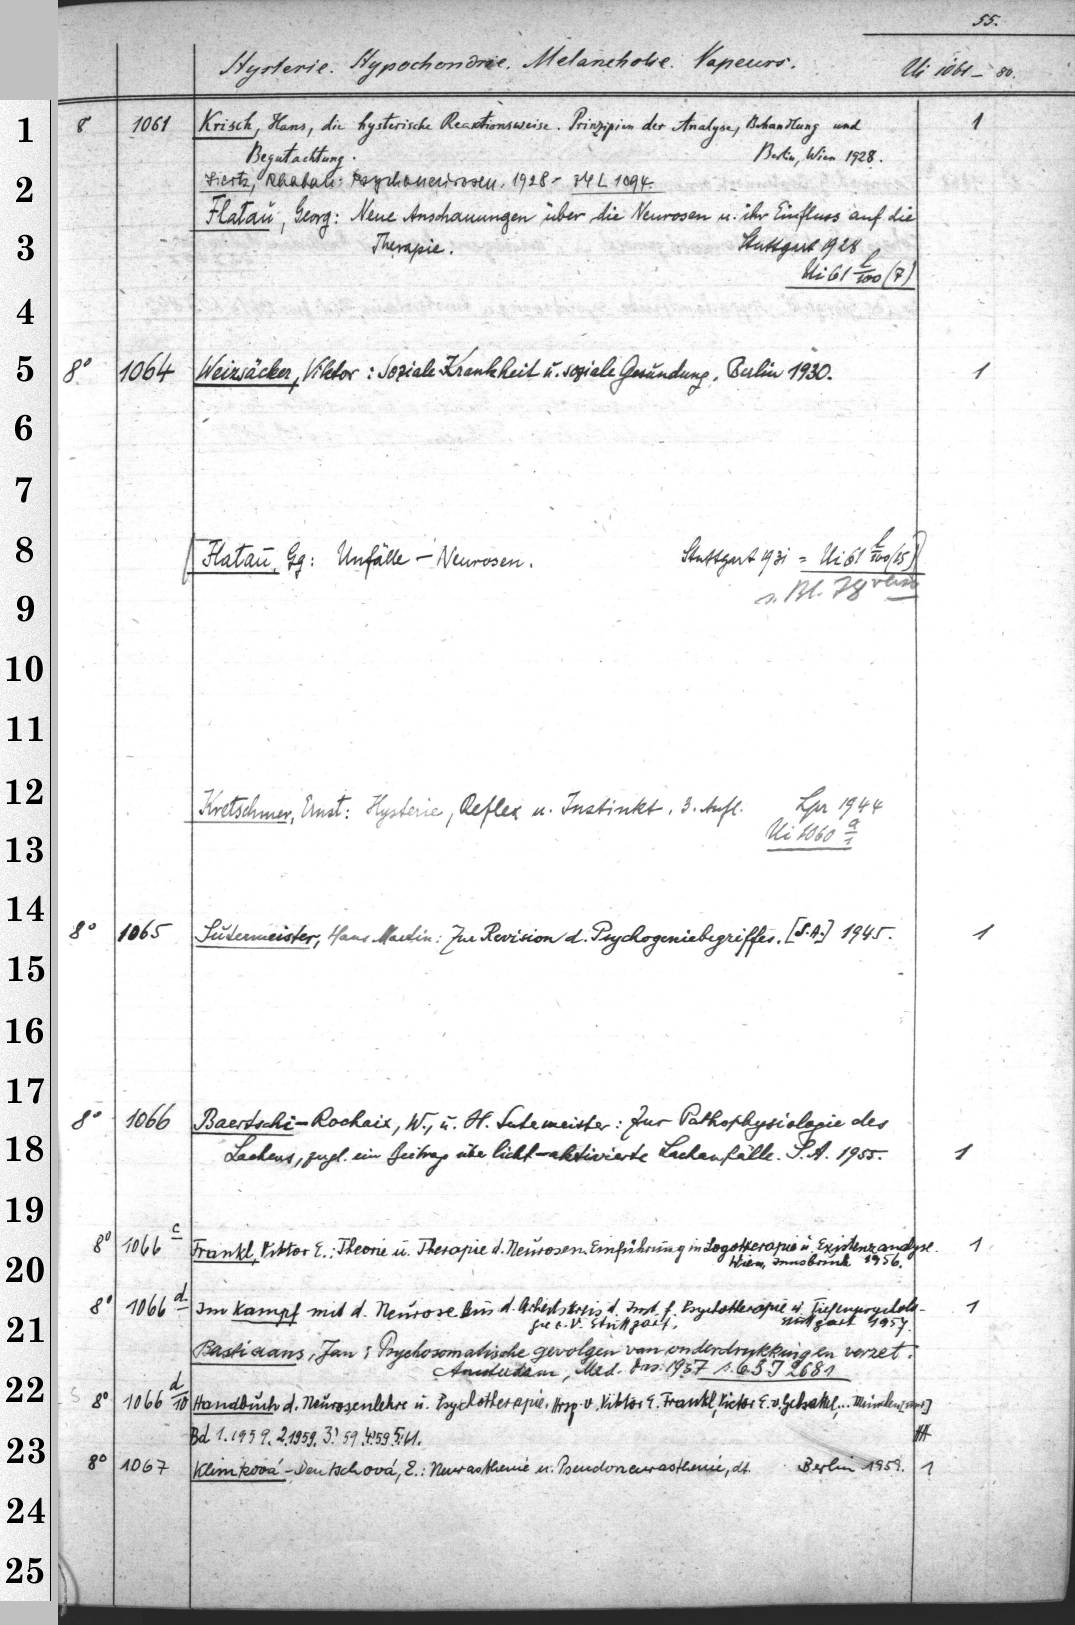 55.
Hysterie. Hypochondrie. Melancholie. Vapeurs. Ui 1061 – 80.
1 8 1061 Krisch, Hans, die hysterische Reaktionsweise. Prinzipien der Analyse, Behandlung und 1
Begutachtung. Berlin, Wien 1928.
2 Psychoneurosen. 1928 = 34 L 1094.
Flatau, Georg: Neue Anschauungen über die Neurosen u. ihr Einfluss auf die
3 Therapie. Stuttgart 1928
Ui 61 l/100 (7)
4
5 8° 1064 Weizsäcker, Viktor: Soziale Krankheit u. soziale Gesundung. Berlin 1930. 1
6
7
8 [Flatau, Gg: Unfälle – Neurosen. Stuttgart 1931 = Ui 61 l/100 (15)]
9 s. Bl. 78 verso
10
11
12 Kretschmer, Ernst: Hysterie, Reflex u. Instinkt. 3. Aufl. Lpz 1944
13 Ui 1060 a/1
14 8° 1065 Sutermeister, Hans Martin: Zur Revision d. Psychogeniebegriffes. [S.A.] 1945. 1
15
16
17 8° 1066 Baertschi-Rochaix, W., u. H. Sutermeister: Zur Pathophysiologie des
18 Lachens, zugl. ein Beitrag über licht-aktivierte Lachanfälle. S.A. 1955. 1
19
8° 1066 c Frankl, Viktor E.: Theorie u. Therapie d. Neurosen. Einführung in Logotherapie u. Existenzanalyse. 1
20 Wien, Innsbruck 1956.
8° 1066 d Im Kampf mit d. Neurose. Aus d. Arbeitskreis d. Inst. f. Psychotherapie u. Tiefenpsycholo- 1
21 gie e.V. Stuttgart. Stuttgart 1957.
Bastiaans, Jan: Psychosomatische gevolgen van onderdrukking en verzet.
Amsterdam, Med. Diss. 1957 s. 63 J 2681
22 8° 1066 d/10 Handbuch d. Neurosenlehre u. Psychotherapie. Hrsg. v. Viktor E. Frankl, Victor E. v. Gebsattel, ...
23 Bd 1. 1959. 2. 1959. 3. 59. 4. 59 5. 61.
8° 1067 Klimková-Deutschová, E.: Neurasthenie u. Pseudoneurasthenie, dt. Berlin 1959. 1
24
25